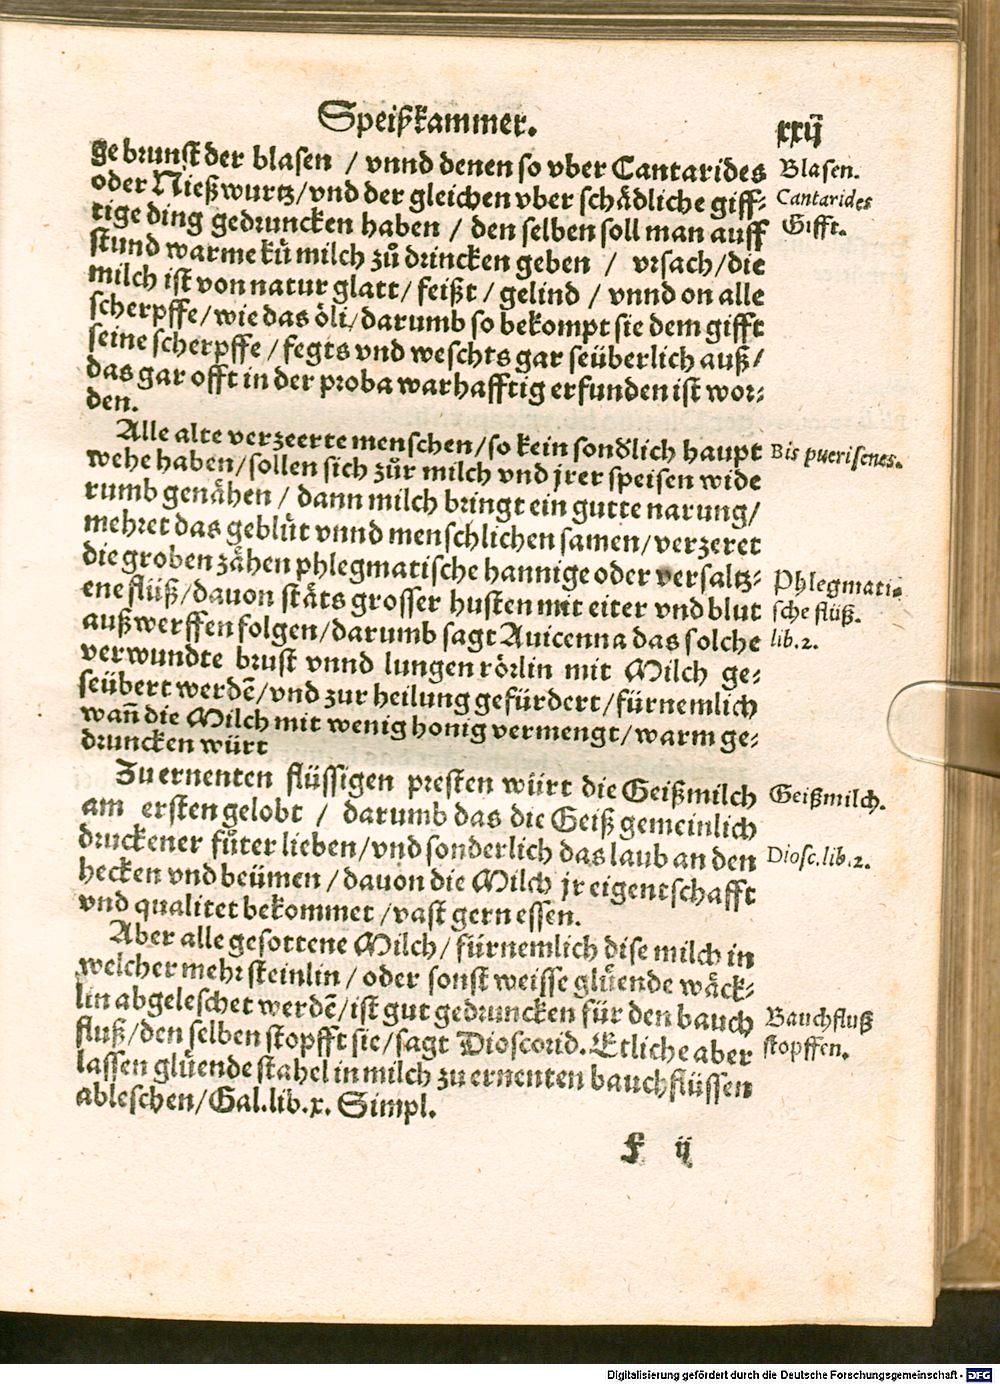 Speißkammer.
xxij
gebrunst der blasen / vnnd denen so vber Cantarides
Blasen.
oder Nießwurtz/vnd der gleichen vber schädliche giff⸗
Cantarides
tige ding gedruncken haben / den selben soll man auff
Gifft.
stund warme kü milch zů drincken geben / vrsach/die
milch ist von natur glatt/ feißt / gelind / vnnd on alle
scherpffe/wie das öli/darumb so bekompt sie dem gifft
seine scherpffe / fegts vnd weschts gar seüberlich auß/
das gar offt in der proba warhafftig erfunden ist wor⸗
den.
Alle alte verzeerte menschen/so kein sondlich haupt
Bis pueri senes.
wehe haben/sollen sich zůr milch vnd jrer speisen wide
rumb genähen / dann milch bringt ein gutte narung/
mehret das geblüt vnnd menschlichen samen/verzeret
die groben zähen phlegmatische hannige oder versaltz⸗
Phlegmati⸗
ene flüß/dauon stäts grosser husten mit eiter vnd blut
sche flüß.
außwerffen folgen/darumb sagt Auicenna das solche
lib.2.
verwundte brust vnnd lungen rörlin mit Milch ge⸗
seübert werdē/vnd zur heilung gefürdert/fürnemlich
wañ die Milch mit wenig honig vermengt/warm ge⸗
druncken würt
Zu ernenten flüssigen presten würt die Geißmilch
Geißmilch.
am ersten gelobt / darumb das die Geiß gemeinlich
druckener fůter lieben/vnd sonderlich das laub an den
Diosc.lib.2.
hecken vnd beümen / dauon die Milch jr eigentschafft
vnd qualitet bekommet /vast gern essen.
Aber alle gesottene Milch/ fürnemlich dise milch in
welcher mehr steinlin / oder sonst weisse glüende wäck⸗
lin abgeleschet werdē/ist gut gedruncken für den bauch
Bauchfluß
fluß/den selben stopfft sie/sagt Dioscorid. Etliche aber
stopffen.
lassen glüende stahel in milch zu ernenten bauchflüssen
ableschen/Gal.lib.x. Simpl.
f ij
Digitalisierung gefördert durch die Deutsche Forschungsgemeinschaft - DFG